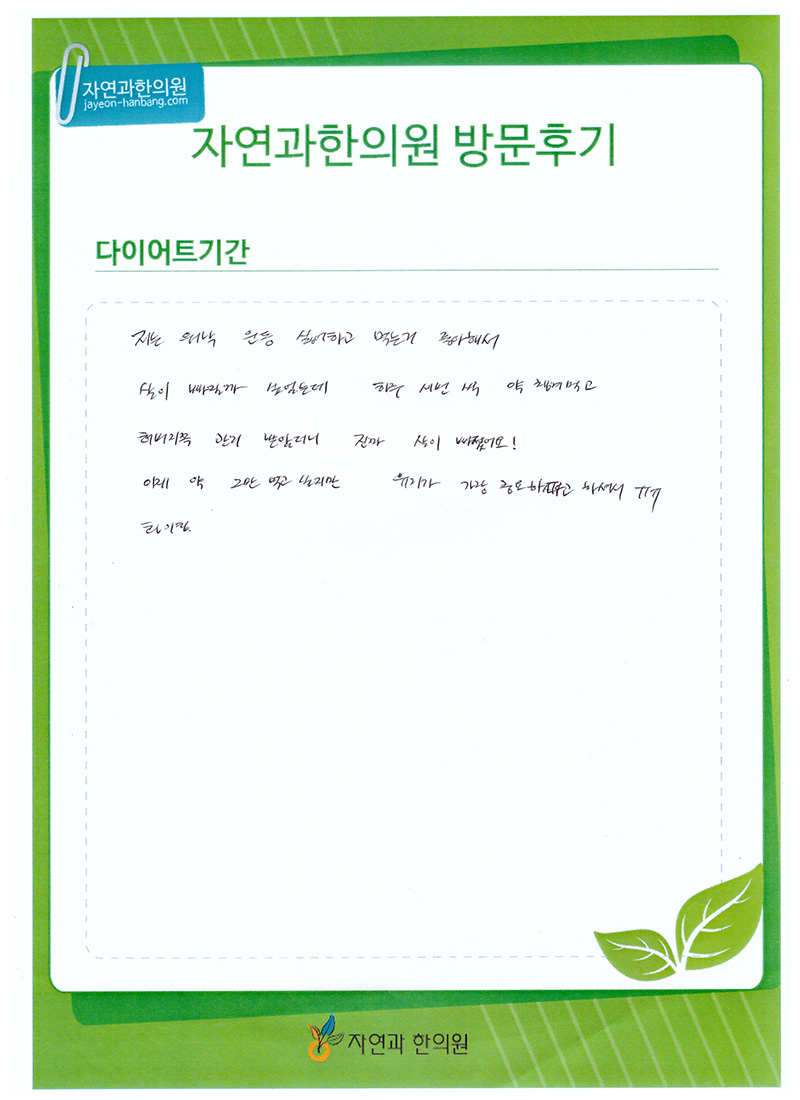 자연과한의원
jayeon-hanbang.com
자연과한의원 방문후기
다이어트기간
저는 워낙 운동 싫어하고 먹는거 좋아해서
살이 빠질까 싶었는데 하루 세번 씩 약 챙겨먹고
허벅지쪽 관리 받았더니 진짜 살이 빠졌어요!
이제 약 그만 먹고 싶지만 유지가 가장 중요하다고 하셔서 ㅠㅠ
화이팅.
자연과 한의원